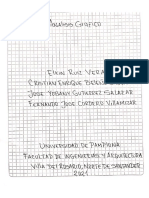 ANALISIS GRAFICO
ELKIN RUIZ VERA
CRISTIAN ENRIQUE
JOSE YOBANY GUTIERREZ SALAZAR
FERNANDO JOSE CORDERO VILLAMIZAR
UNIVERSIDAD DE PAMPLONA
FACULTAD DE INGENIERIAS Y ARQUITECTURA
VILLA DEL ROSARIO, NORTE DE SANTANDER
2021